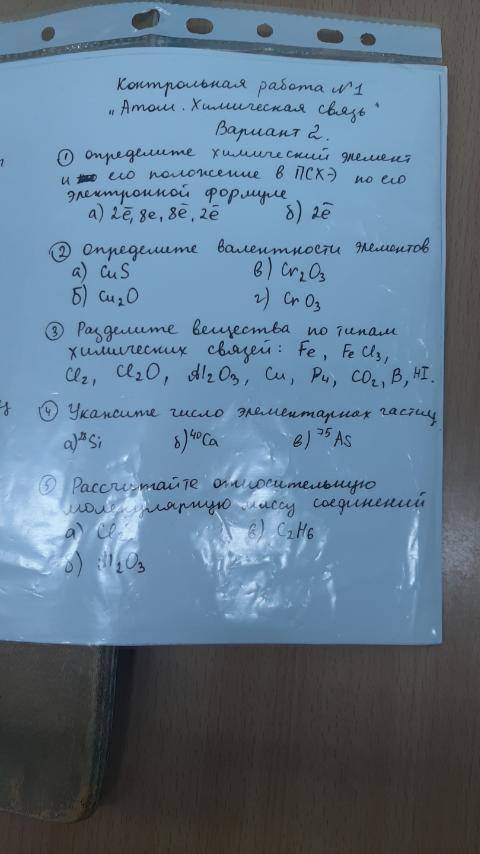 Контрольная работа №1
„Атом. Химическая связь"
Вариант 2.
① определите химический элемент
и его положение в ПСХЭ по его
электронной формуле
а) 2ē, 8е, 8ē, 2ē б) 2ē
② Определите валентности элементов
а) CuS в) Cr₂O₃
б) Cu₂O г) CrO₃
③ Разделите вещества по типам
химических связей: Fe, FeCl₃,
Cl₂, Cl₂O, Al₂O₃, Cu, P₄, CO₂, B, HI.
④ Укажите число элементарных частиц
а) ²⁸Si б) ⁴⁰Ca в) ⁷⁵As
⑤ Рассчитайте относительную
молекулярную массу соединений
а) в) C₂H₆
б) Al₂O₃